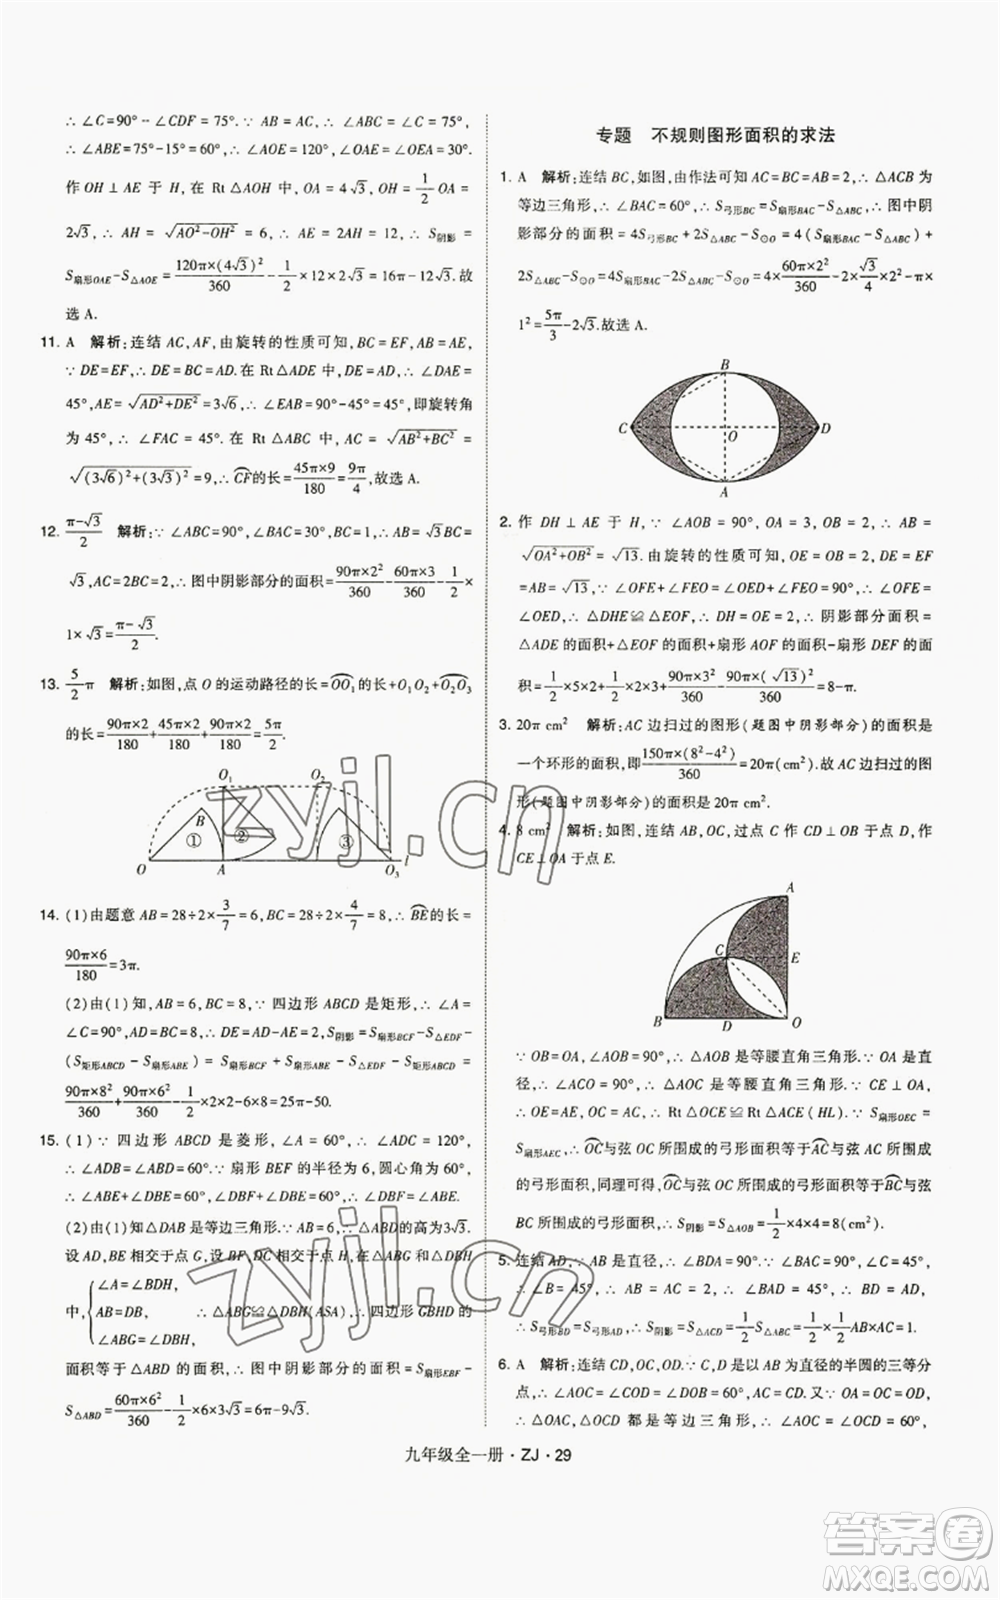 ∴ ∠C=90°-∠CDF=75°.∵ AB=AC,∴ ∠ABC=∠C=75°,
∴ ∠ABE=75°-15°=60°,∴ ∠AOE=120°,∴ ∠OAE=30°.
作 OH⊥AE 于 H,在 Rt△AOH 中,OA=4√3,OH=1/2 OA=
2√3,∴ AH=√(AO²-OH²)=6,∴ AE=2AH=12,∴ S阴影=
S扇形OAE-S△AOE=120π×(4√3)²/360-1/2×12×2√3=16π-12√3.故
选 A.
11. A 解析:连结 AC,AF,由旋转的性质可知,BC=EF,AB=AE,
∵ DE=EF,∴ DE=BC=AD.在 Rt△ADE 中,∴ ∠DAE=
45°,AE=√(AD²+DE²)=3√6,∴ ∠EAB=90°-45°=45°,即旋转角
为 45°,∴ ∠FAC=45°.在 Rt△ABC 中,AC=√(AB²+BC²)=
√((3√6)²+(3√3)²)=9,∴ CF的长=45π×9/180=9π/4,故选 A.
12. (π-√3)/2 解析:∵ ∠ABC=90°,∠BAC=30°,BC=1,∴ AB=√3BC=
√3,AC=2BC=2,∴ 图中阴影部分的面积=90π×2²/360-60π×3/360-1/2×
1×√3=(π-√3)/2.
13. 5/2π 解析:如图,点 O 的运动路径的长=OO₁的长+O₁O₂+O₂O₃
的长=90π×2/180+45π×2/180+90π×2/180=5π/2.
O₁ O₂ B ① ② ③ O A O₃ l
14. (1)由题意 AB=28÷2×3/7=6,BC=28÷2×4/7=8,∴ BE的长=
90π×6/180=3π.
(2)由(1)知,AB=6,BC=8,∵ 四边形 ABCD 是矩形,∴ ∠A=
∠C=90°,AD=BC=8,∴ DE=AD-AE=2,S阴影=S扇形BCF-S△EDF-
(S矩形ABCD-S扇形ABE)=S扇形BCF+S扇形ABE-S△EDF-S矩形ABCD=
90π×8²/360+90π×6²/360-1/2×2×2-6×8=25π-50.
15. (1)∵ 四边形 ABCD 是菱形,∠A=60°,∴ ∠ADC=120°,
∴ ∠ADB=∠BDH=60°.∵ 扇形 BEF 的半径为 6,圆心角为 60°,
∴ ∠EBF=∠ABD=60°,∴ ∠ABE=∠DBF.
(2)由(1)知△DAB 是等边三角形.∵ AB=6,∴△ABD的高为3√3.
设 AD,BE 相交于点 G,设 BF,DC 相交于点 H,在△ABG 和△DBH
中,{∠A=∠BDH, AB=DB, ∠ABG=∠DBH, ∴ △ABG≌△DBH(ASA),∴ 四边形 GBHD 的
面积等于△ABD 的面积,∴ 图中阴影部分的面积=S扇形EBF-
S△ABD=60π×6²/360-1/2×6×3√3=6π-9√3.
专题 不规则图形面积的求法
1. A 解析:连结 BC,如图,由作法可知 AC=BC=AB=2,∴ △ACB 为
等边三角形,∴ ∠BAC=60°,∴ S弓形BC=S扇形BAC-S△ABC,∴ 图中阴
影部分的面积=4S弓形BC+2S△ABC-S⊙O=4(S扇形BAC-S△ABC)+
2S△ABC-S⊙O=4S扇形BAC-2S△ABC-S⊙O=4×60π×2²/360-2×√3/4×2²-π×
1²=5π/3-2√3.故选 A.
B C O D A
2. 作 DH⊥AE 于 H,∵ ∠AOB=90°,OA=3,OB=2,∴ AB=
√(OA²+OB²)=√13.由旋转的性质可知,OE=OB=2,DE=EF
=AB=√13,∵ ∠OFE+∠FEO=∠OED+∠FEO=90°,∴ ∠OFE=
∠OED,∴ △DHE≌△EOF,∴ DH=OE=2,∴ 阴影部分面积=
△ADE 的面积+△EOF 的面积+扇形 AOF 的面积-扇形 DEF 的面
积=1/2×5×2+1/2×2×3+90π×3²/360-90π×(√13)²/360=8-π.
3. 20π cm² 解析:AC 边扫过的图形(题图中阴影部分)的面积是
一个环形的面积,即150π×(8²-4²)/360=20π(cm²).故 AC 边扫过的图
形(题图中阴影部分)的面积是20π cm².
4. 8 cm² 解析:如图,连结 AB,OC,过点 C 作 CD⊥OB 于点 D,作
CE⊥OA 于点 E.
A C E B D O
∵ OB=OA,∴ △AOB 是等腰直角三角形.∵ ∠AOC=45°,
∴ ∠COE=45°,∴ △OCE 是等腰直角三角形.∵ CE⊥OA,
∴ OE=AE,OC=AC,∴ Rt△OCE≌Rt△ACE(HL).∵ S扇形OEC=
S扇形AEC,∴ OC与弦 OC 所围成的弓形面积等于AC与弦 AC 所围成
的弓形面积,同理可得,OC与弦 OC 所围成的弓形面积等于BC与弦
BC 所围成的弓形面积,∴ S阴影=S△AOB=1/2×4×4=8(cm²).
5. 连结 AD,∵ AB 是直径,∴ ∠BDA=90°.∵ AB=AC,∠C=45°,
∴ ∠B=45°,∴ ∠BAD=45°,∴ ∠DAC=45°,∴ AD=BD=CD,
∴ S弓形BD=S弓形AD,∴ S阴影=S△ACD=1/2S△ABC=1/2×1/2AB×AC=1.
6. A 解析:连结 CD,OC,OD.∵ C,D 是以 AB 为直径的半圆的三等分
点,∴ ∠AOC=∠COD=∠DOB=60°,AC=CD.又∵ OA=OC=OD,
∴ △OAC,△OCD 都是等边三角形,∴ ∠AOC=∠OCD=60°,
九年级全一册·ZJ·29
zyjl.cn
zyjl.cn
答案卷
MXQE.COM